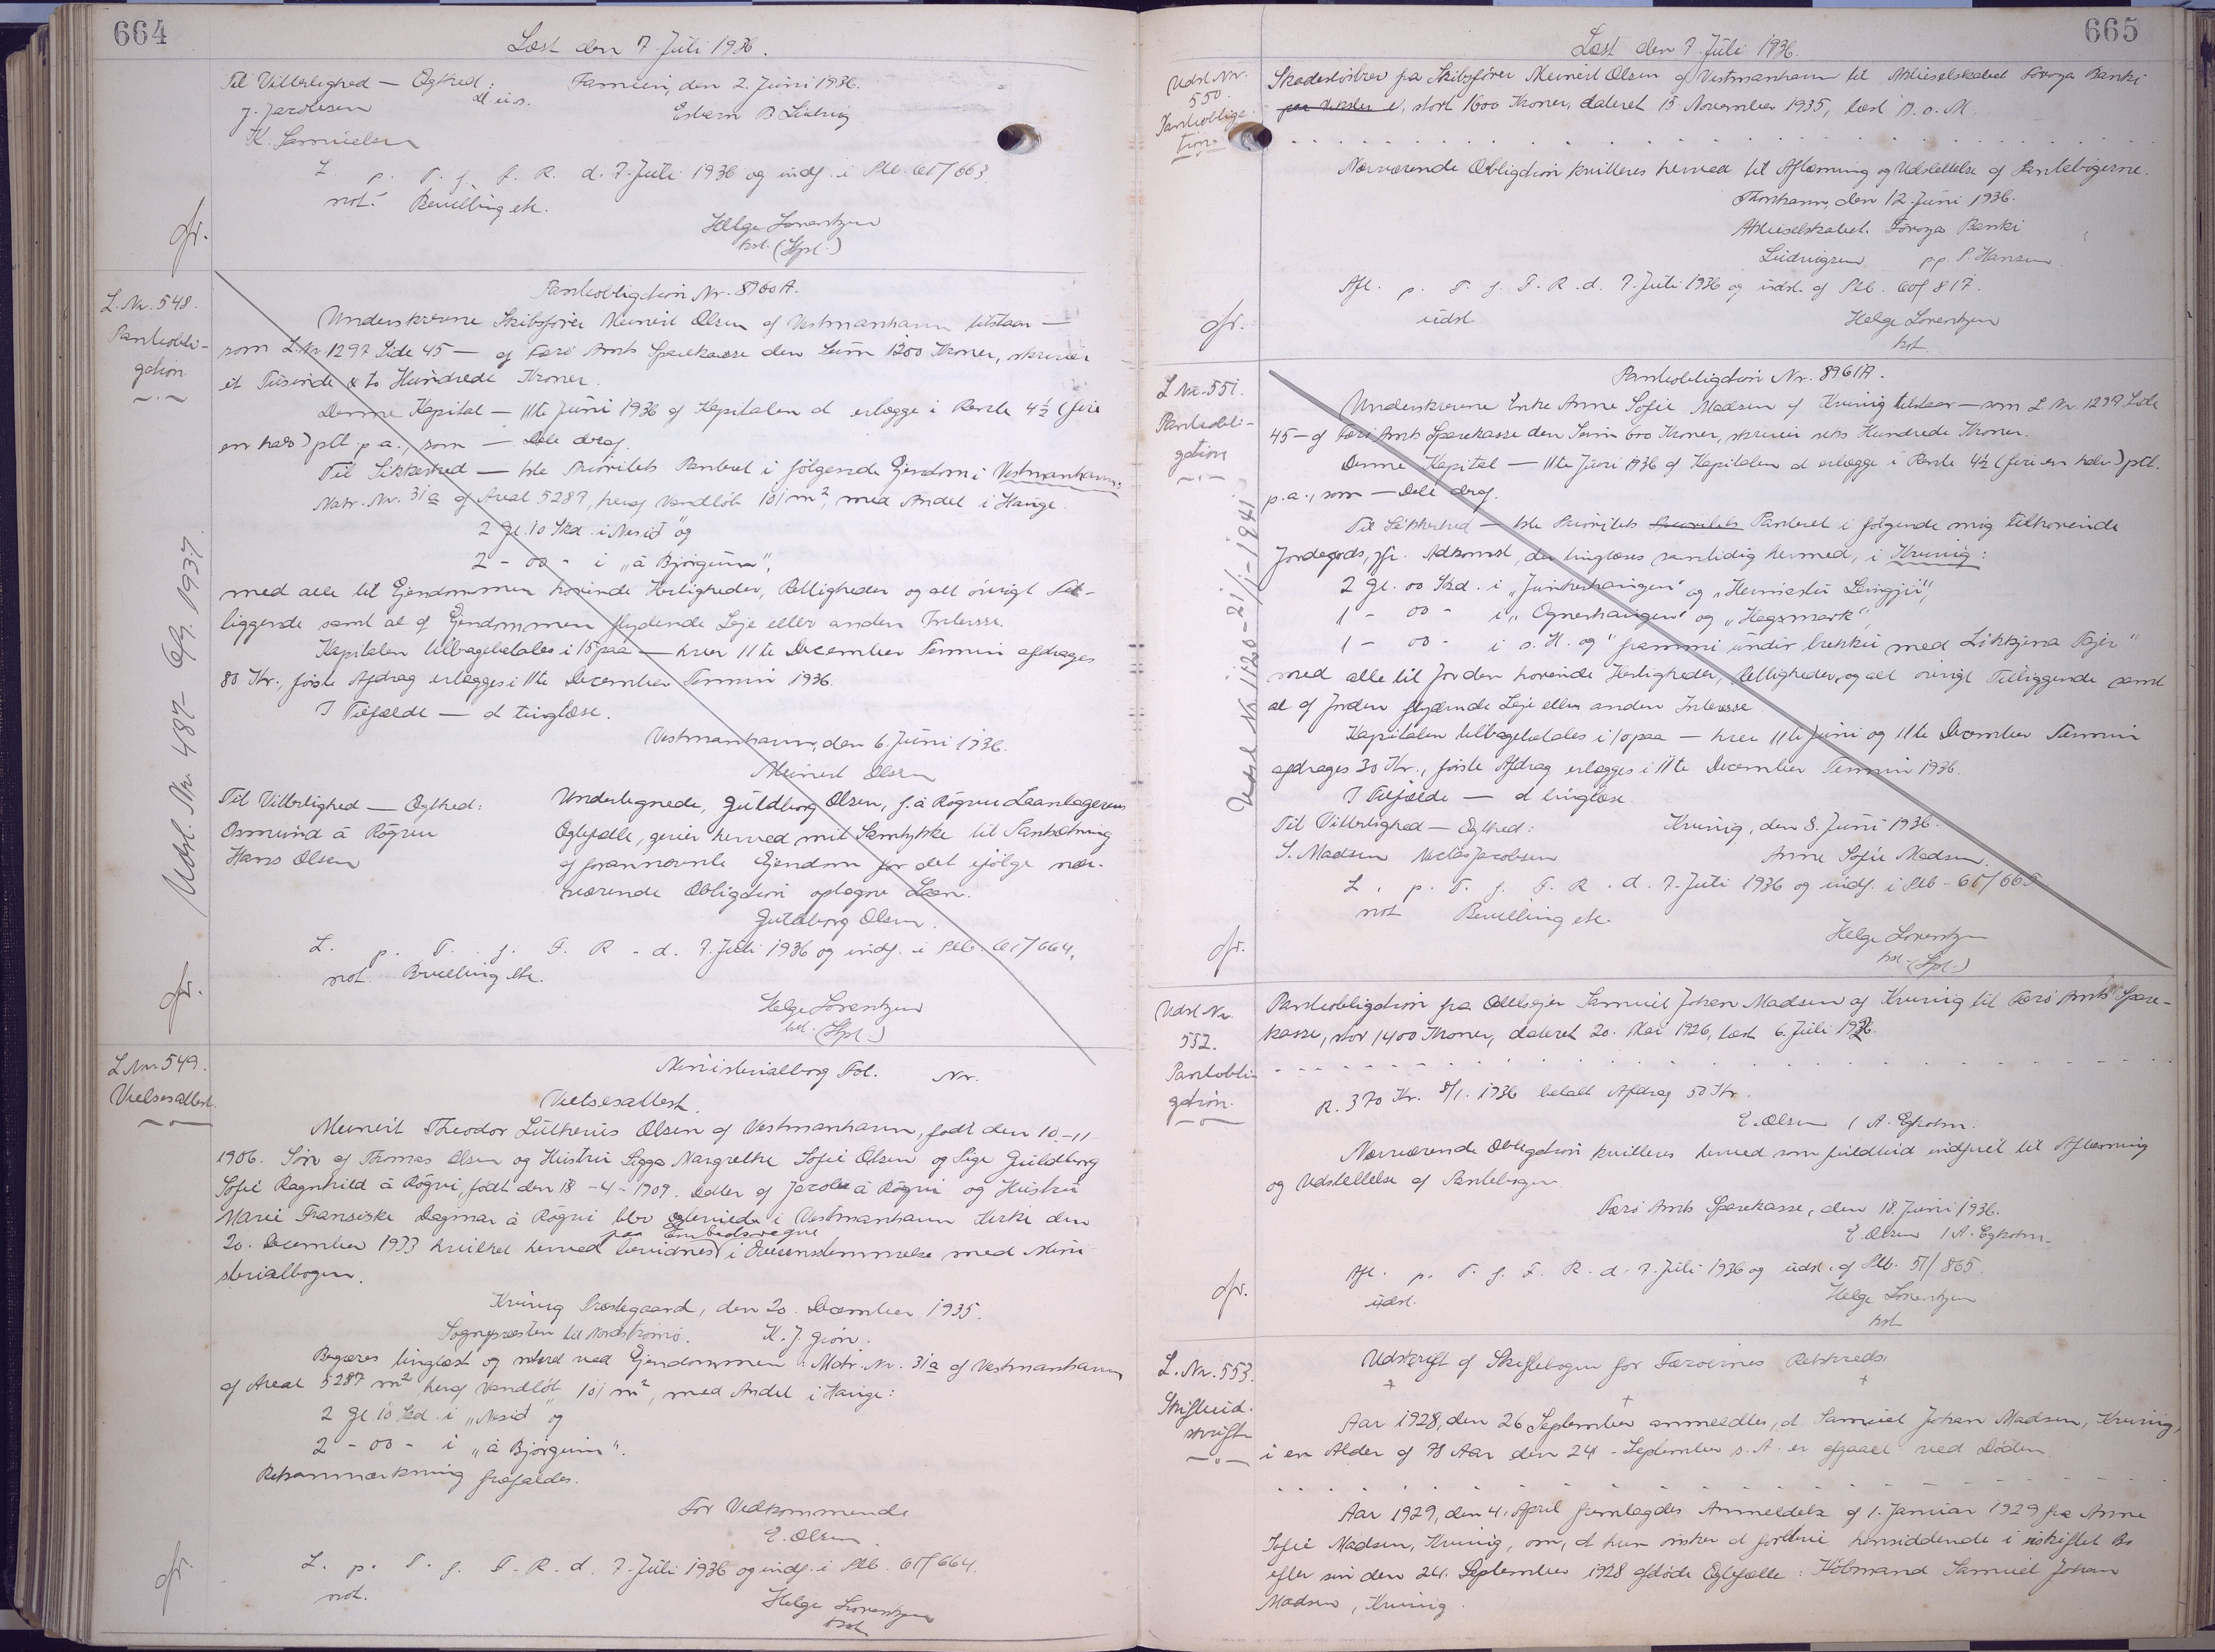 664
Læst den 7. Juli 1936.
Til Vitterlighed — Egthed:
d. u. s.
Famien, den 2. Juni 1936.
J. Jacobsen
K. Samuelsen
L. p. T. f. F. R. d. 7. Juli 1936 og indf. i Ptb. 61/663.
not. Bevilling etc.
Helge Lorentzen
kst. (Spl.)
L. Nr. 548.
Pantobli-
gation
Pantobligation Nr. 8900 A.
Underskrevne Skibsfører Meinert Olsen af Vestmanhavn tilstaar —
som L. Nr 1297 Side 45 — af Færø Amts Sparekasse den Sum 1200 Kroner, skriver
et Tusinde & to Hundrede Kroner.
Denne Kapital — 11te Juni 1936 af Kapitalen at erlægge i Rente 4½ (fire
en halv) pCt. p. a., som — Dele deraf.
Til Sikkerhed — 1ste Prioritets Panteret i følgende Ejendom i Vestmanhavn:
Matr. Nr. 31a af Areal 5287, heraf Vandløb 101 m², med Andel i Hauge.
2 Gl. 10 Skd. i Nesið" og
2 - 00 - i „á Bjørgum",
med alle til Ejendommen hørende Herligheder, Rettigheder og alt øvrigt Til-
liggende samt al af Ejendommen flydende Leje eller anden Interesse.
Kapitalen tilbagebetales i 15 paa — hver 11te December Termin afdrages
80 Kr., første Afdrag erlægges i 11te December Termin 1936.
I Tilfælde — at tinglæse.
Vestmanhavn, den 6. Juni 1936.
Meinert Olsen
Til Vitterlighed — Egthed:
Osmund á Røgvu
Hans Olsen
Undertegnede, Guldborg Olsen, f. á Røgvu Laantagerens
Ægtefælle, giver herved mit Samtykke til Pantsætning
af forannævnte Ejendom for det ifølge nær-
værende Obligation optagne Laan.
Guldborg Olsen.
L. p. T. f. F. R. d. 7. Juli 1936 og indf. i Ptb. 61/664.
not. Bevilling etc.
Helge Lorentzen
kst. (Spl.)
Udsl. Nr. 487 - 6/9. 1937.
L. Nr. 549.
Vielsesattest.
Ministerialborg Fol. Nr.
Vielsesattest.
Meinert Theodor Lutherus Olsen af Vestmanhavn, født den 10-11
1906. Søn af Thomas Olsen og Hustru Sigga Margrethe Sofie Olsen og Pige Guldborg
Sofie Ragnhild á Røgvi, født den 18-4-1909. Datter af Jacob á Røgvi og Hustru
Marie Fransiske Dagmar á Røgvi blev ægteviede i Vestmanhavn Kirke den
20. December 1933 hvilket herved paa Embedsvegne bevidnes i Overensstemmelse med Mini-
sterialbogen.
Kvivig Præstegaard, den 20. December 1935.
Sognepræsten til Nordstrømø. K. J. Grøn.
Begæres tinglæst og noteret ved Ejendommen: Matr. Nr. 31a af Vestmanhavn
af Areal 5287 m² heraf Vandløb 101 m², med Andel i Hauge:
2 Gl. 10 Skd. i „Nesið" og
2 - 00 - i „á Bjørgum".
Retsanmærkning frafaldes.
For Vedkommende
E. Olsen
L. p. T. f. F. R. d. 7. Juli 1936 og indf. i Ptb. 61/664.
not.
Helge Lorentzen
kst.
665
Læst den 7. Juli 1936.
Udsl. Nr.
550.
Pantoblige-
tion
Skadesløsbrev fra Skibsfører Meinert Olsen af Vestmanhavn til Aktieselskabet Føroya Banki
stort 1600 Kroner, dateret 15. November 1935, læst D. o. M.
Nærværende Obligation kvitteres herved til Aflæsning og Udslettelse af Pantebøgerne.
Thorshavn, den 12. Juni 1936.
Aktieselskabet Føroya Banki
Ludvigsen pp. P. Hansen
Afl. p. T. f. F. R. d. 7. Juli 1936 og udsl. af Ptb. 60/817.
udsl.
Helge Lorentzen
kst.
L Nr. 551.
Pantobli-
gation
Pantobligation Nr. 8961A.
Underskrevne Enke Anne Sofie Madsen af Kvivig tilstaar — som L Nr. 1297 Side
45 — af Færø Amts Sparekasse den Sum 600 Kroner, skriver seks Hundrede Kroner.
Denne Kapital — 11te Juni 1936 af Kapitalen at erlægge i Rente 4½ (fire en halv) pCt.
p. a., som — Dele deraf.
Til Sikkerhed — 1ste Prioritets Prioritets Panteret i følgende mig tilhørende
Jordegods, jfr. Adkomst, der tinglæses samtidig hermed, i Kvivig:
2 Gl. 00 Skd. i „Junkerhaugen" og
1 - 00 - i „Ognerhaugen" og „Hagsmark",
1 - 00 - i s. H. og "frammi undir brekku med
med alle til Jorden hørende Herligheder, Rettigheder og alt øvrigt Tilliggende samt
al af Jorden flydende Leje eller anden Interesse.
Kapitalen tilbagebetales i 10 paa — hver 11te Juni og 11te December Termin
afdrages 30 Kr., første Afdrag erlægges i 11te December Termin 1936.
I Tilfælde — at tinglæse.
Til Vitterlighed — Egthed:
Kvivig, den 8. Juni 1936.
S. Madsen Niclas Jacobsen
Anne Sofie Madsen.
L. p. T. f. F. R. d. 7. Juli 1936 og indf. i Ptb. 61/665
not Bevilling etc.
Helge Lorentzen
kst. (Spl.)
Udsl. Nr. 1120 - 21/1 - 1941
Udsl Nr.
552.
Pantobli-
gation.
Pantobligation fra Odelsejer Samuel Johan Madsen af Kvivig til Færø Amts Spare-
kasse, stor 1400 Kroner, dateret 20. Mai 1926, læst 6. Juli 1926.
R. 370 Kr. 8/1. 1936 betalt Afdrag 50 Kr.
E. Olsen / A. Egholm.
Nærværende Obligation kvitteres herved som fuldtud indfriet til Aflæsning
og Udslettelse af Pantebogen.
Færø Amts Sparekasse, den 18. Juni 1936.
E. Olsen / A. Egholm.
Afl. p. T. f. F. R. d. 7. Juli 1936 og udsl. af Ptb. 51/865.
udsl.
Helge Lorentzen
kst
L. Nr. 553.
Skifteud-
skrift
Udskrift af Skiftebogen for Færøernes Retskreds.
Aar 1928, den 26 September anmeldtes, at Samuel Johan Madsen, Kvivig,
i en Alder af 78 Aar den 24. September s. A. er afgaaet ved Døden.
Aar 1929, den 4. April fremlagdes Anmeldelse af 1. Januar 1929 fra Anne
Sofie Madsen, Kvivig, om, at hun ønsker at forblive hensiddende i uskiftet Bo
efter sin den 24. September 1928 afdøde Ægtefælle: Købmand Samuel Johan
Madsen, Kvivig.